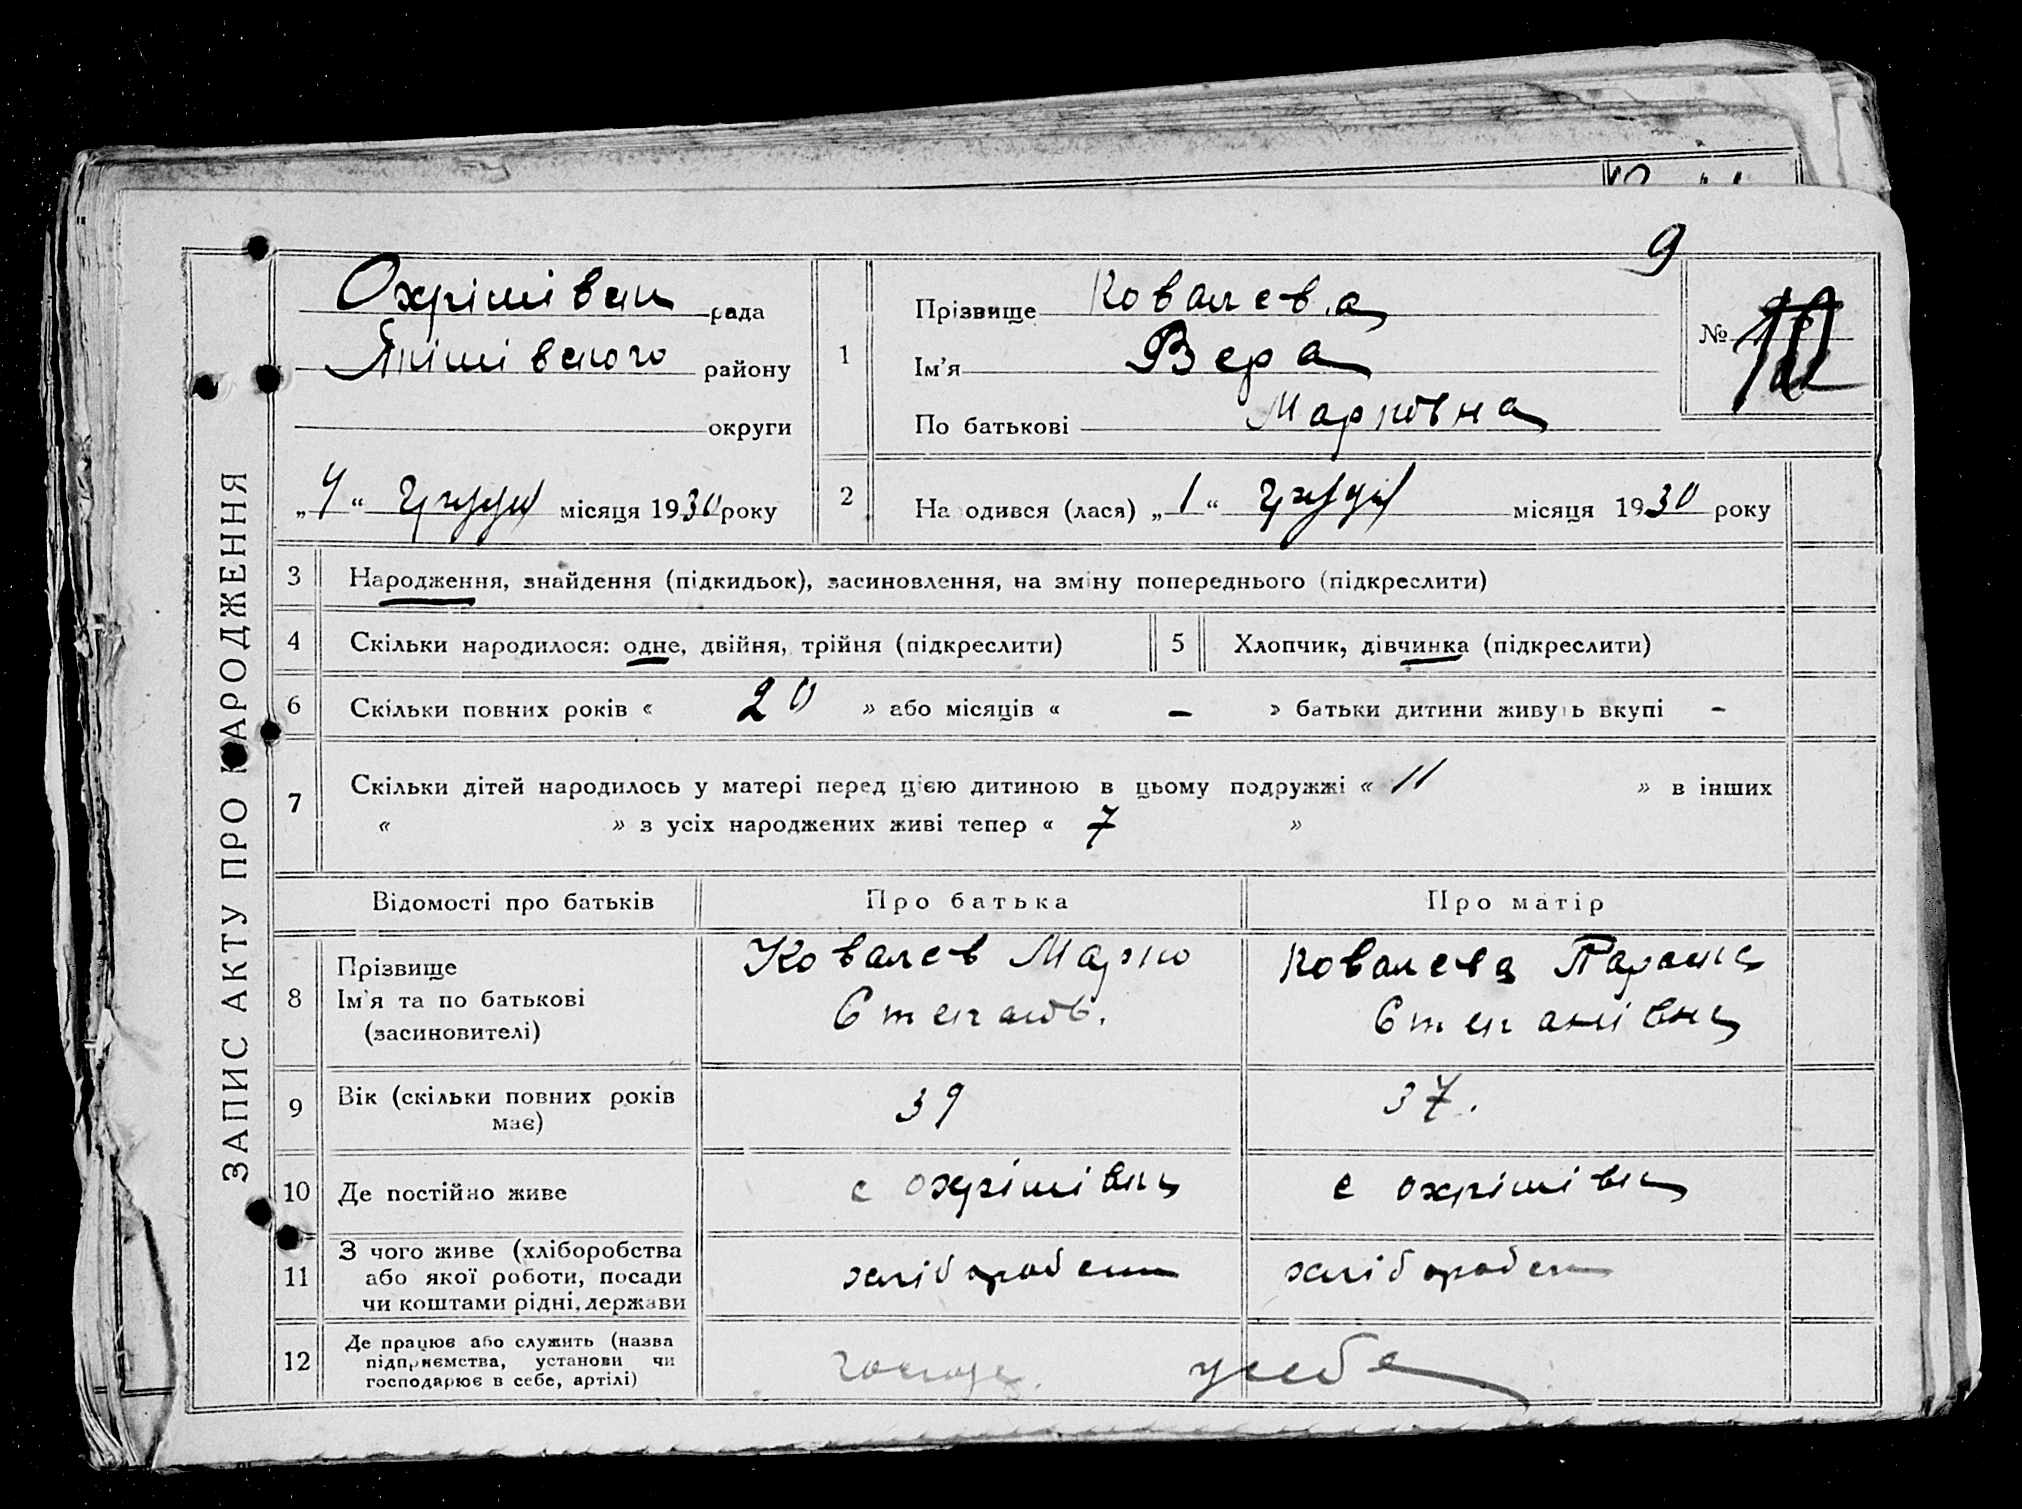 ЗАПИС АКТУ ПРО НАРОДЖЕННЯ
9
Охрімівск рада
Якімівського району
округи
„4“ грудн місяця 1930 року
1
Прізвище Ковалева
Ім'я Вера
По батькові Марковна
№ 10
2
На одився (лася) „1“ грудн місяця 1930 року
3 Народження, знайдення (підкидьок), засиновлення, на зміну попереднього (підкреслити)
4 Скільки народилося: одне, двійня, трійня (підкреслити)
5 Хлопчик, дівчинка (підкреслити)
6 Скільки повних років « 20 » або місяців « – » батьки дитини живуть вкупі –
7 Скільки дітей народилось у матері перед цією дитиною в цьому подружжі « 11 » в інших
« » з усіх народжених живі тепер « 7 »
Відомості про батьків Про батька Про матір
8 Прізвище
Ім'я та по батькові
(засиновителі)
Ковалев Марко
Степанов.
Ковалева Параска
Степанівна
9 Вік (скільки повних років
має)
39
37.
10 Де постійно живе
с Охрімівка
с Охрімівка
11 З чого живе (хліборобства
або якої роботи, посади
чи коштами рідні, держави
хліборобств
хлібороб
12 Де працює або служить (назва
підприємства, установи чи
господарює в себе, артілі)
у себе